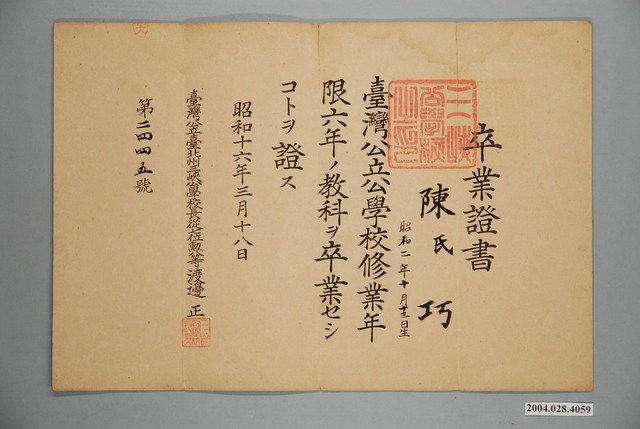 卒業證書
陳氏 巧
昭和二年十月廿三日生
臺灣公立公學校修業年
限六年ノ教科ヲ卒業セシ
コトヲ證ス
昭和十六年三月十八日
臺灣公立臺北州三峽公學校長從七位勲八等渡邊 正
第二四四五號
2004.028.4059